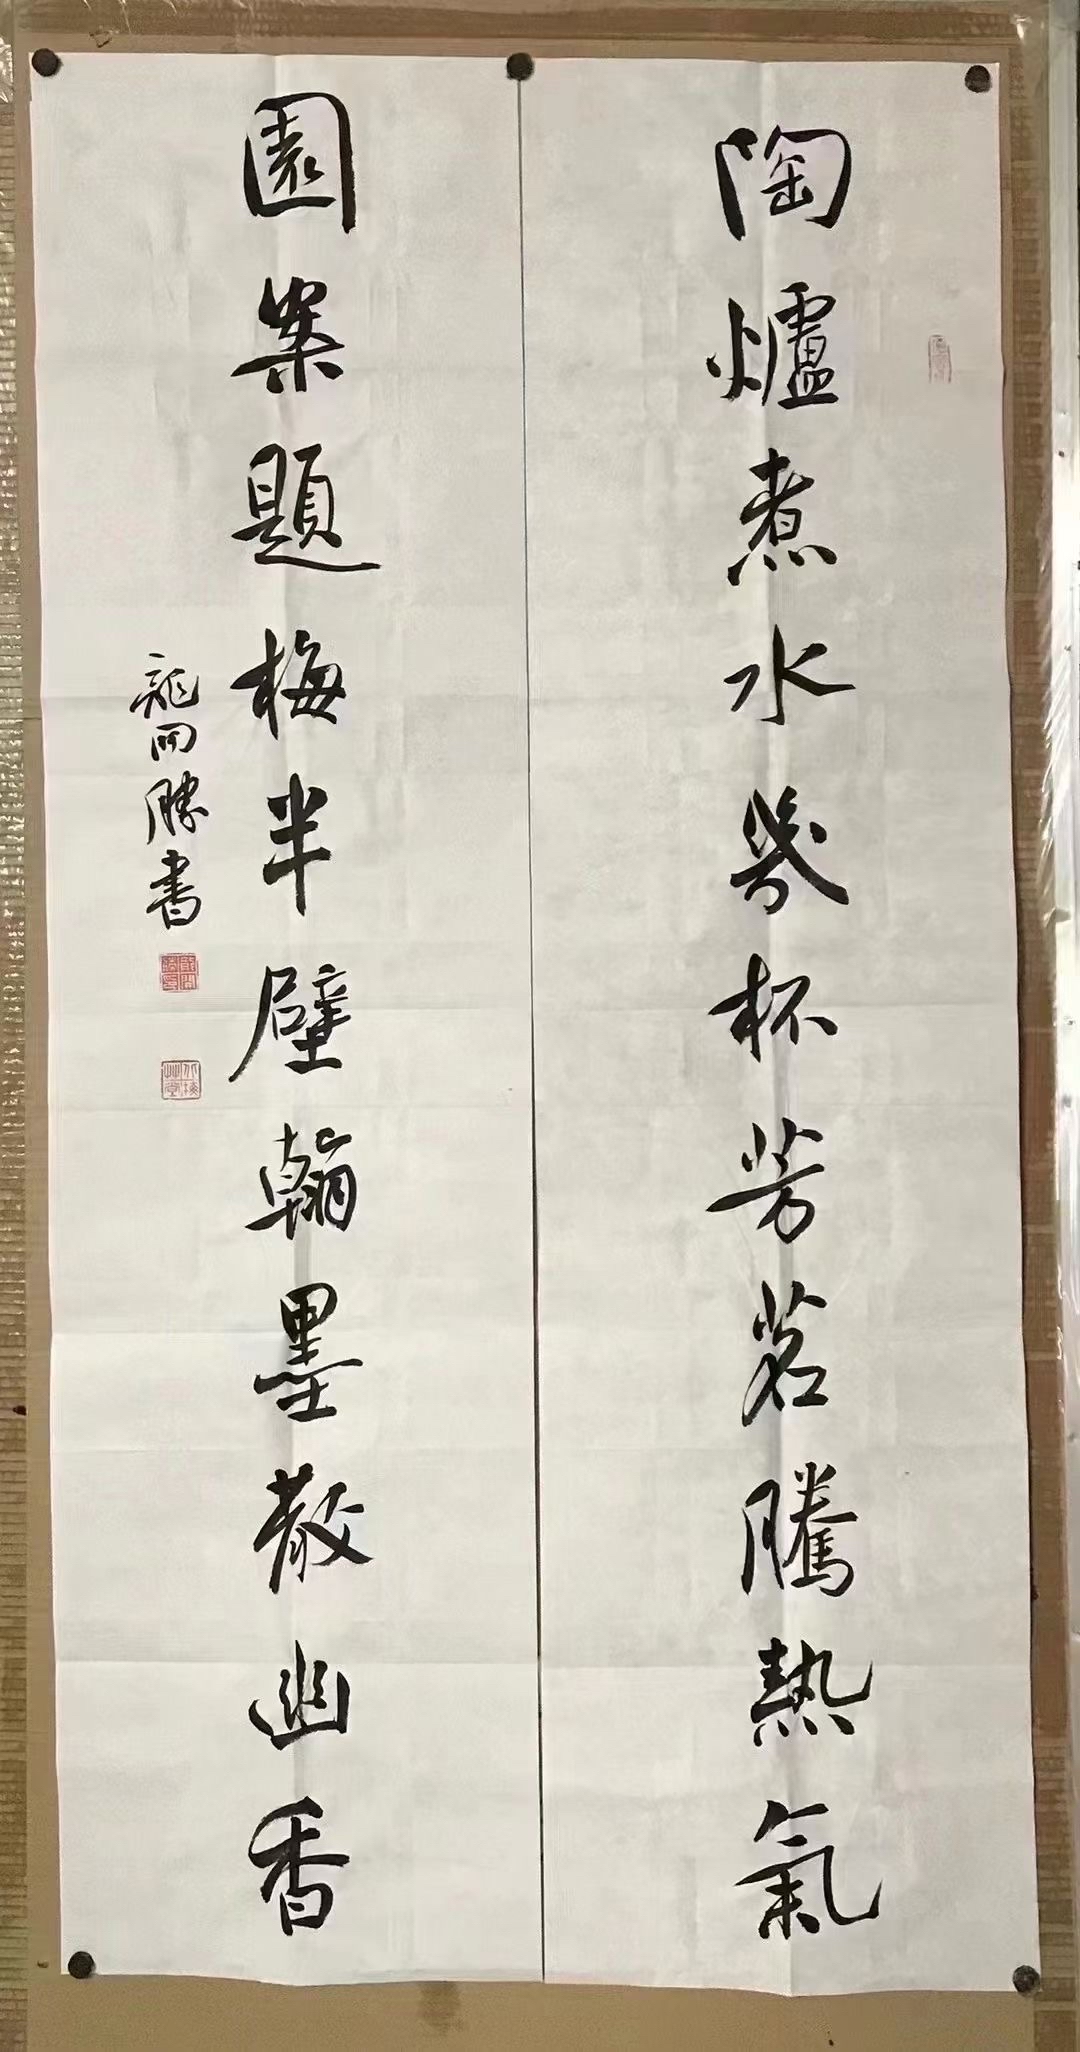 陶爐煮水幾杯芳茗騰熱氣
園案題梅半壁翰墨散幽香
龍開勝書